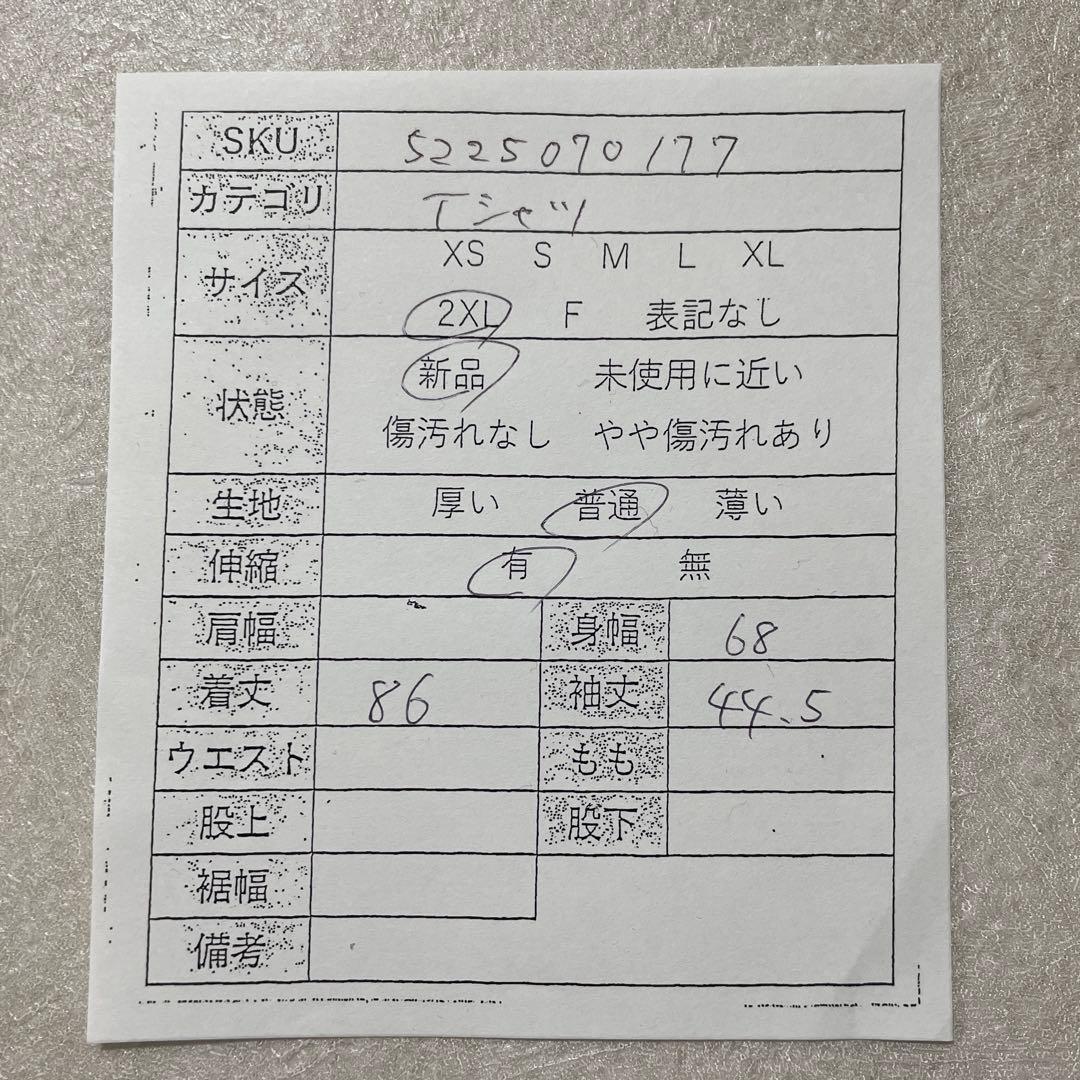 SKU 5225070177
カテゴリ Tシャツ
サイズ XS S M L XL
2XL F 表記なし
状態 新品 未使用に近い
傷汚れなし やや傷汚れあり
生地 厚い 普通 薄い
伸縮 有 無
肩幅 身幅 68
着丈 86 袖丈 44.5
ウエスト もも
股上 股下
裾幅
備考